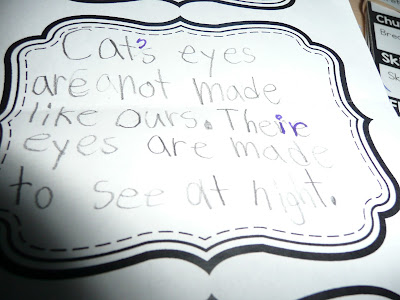 Cat's eyes
are not made
like ours. Their
eyes are made
to see at night.
Chu
Brea
Ski
Sk